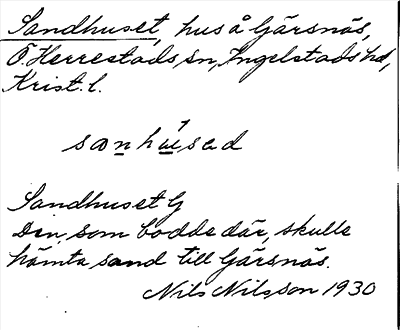 Sandhuset, hus å Gärsnäs,
Ö. Herrestads sn, Ingelstads hd,
Krist. l.
sanhúsad
Sandhuset G
Den, som bodde där, skulle
hämta sand till Gärsnäs.
Nils Nilsson 1930